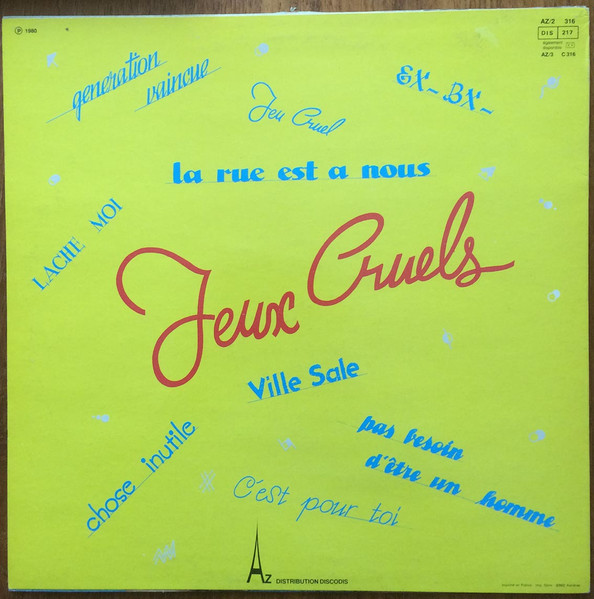 ℗ 1980
AZ/2 316
DIS 217
AZ/3 C 316
generation
vaincue
Jeu Cruel
EX_BX_
la rue est a nous
LACHE MOI
Jeux Cruels
Ville Sale
chose inutile
pas besoin
d'être un homme
C'est pour toi
AZ DISTRIBUTION DISCODIS